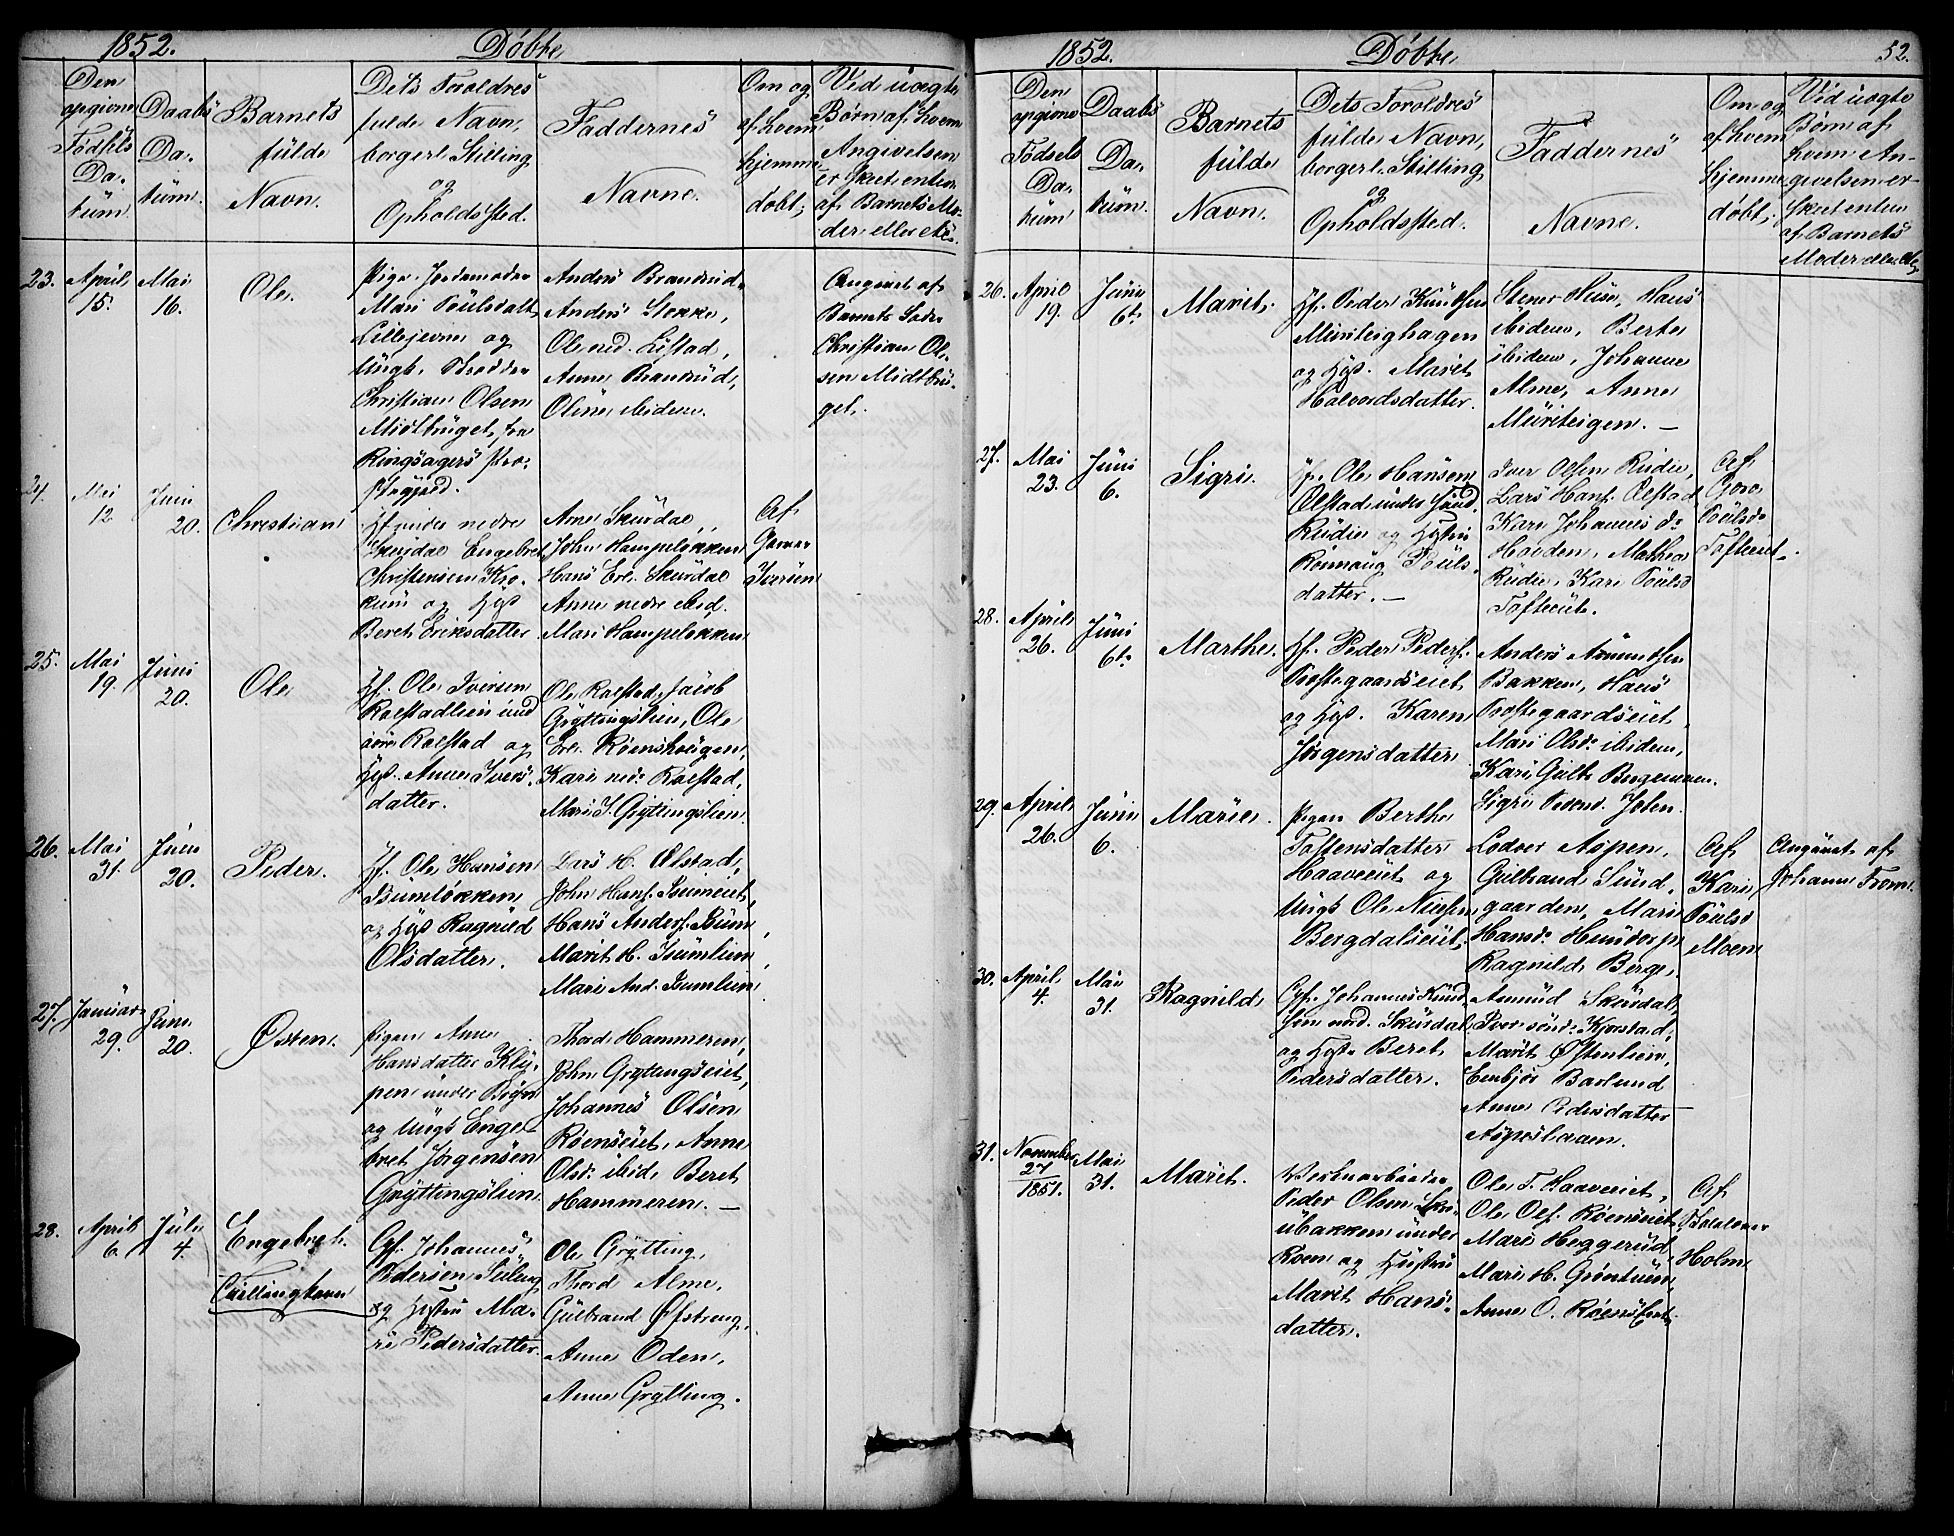 1852. Døbte
Den
opgivne
Fødsels
Da-
tüm.
Daabs
Da-
tüm.
Barnets
fülde
Navn.
Dets Foroldres
fulde Navn,
borgerl. Stilling
og
Opholdssted.
Faddernes
Navne.
Om og
af hvem
hjemme-
døbt;
Ved uægte
Børn af hvem
Angivelsen
er skeet enten
af Barnets Mo-
der eller
23. April 15. Mai 16.
Ole.
Pige
Mari Poulsdatt.
Lillejevne og
Ungk.
Christian Olsen
Midtbruget, fra
Ringsagers Præ-
stegjæld.
Anders Brandrud,
Anders Stokke,
Ole ned. Listad,
Anne Brandrud,
Oline ibidem.
Angivet af
Barnets Fader
Christian Ol-
sen Midtbru-
get.
24. Mai 12. Juni 20.
Christian
Hf. under nedre
Skurdal Engebret
Christensen Kro-
kum og Hst
Beret Eriksdatter
Arne Skurdal,
John Hampeløkken
Hans Erl. Skurdal
Anne nedre ibid.
Mari Hampeløkken
Af
Iversen
25. Mai 19. Juni 20.
Ole
Hf. Ole Iversen
Rolstadlien und
øvre Rolstad og
Hst. Anne Ivers-
datter.
Ole Rolstad, Jacob
Gryttingslien, Ole
Erl. Roenshaugen,
Kari ned. Rolstad,
Mari J. Gryttingslien.
26. Mai 31. Juni 20.
Peder.
Hf. Ole Hansen
Isumløkken
og Hst Ragnild
Olsdatter.
Lars H. Ølstad,
John Hans. Isumeiet,
Hans Anders. Isum
Marit H. Isumlien,
Mari And. Isumlien
27. Januar 29. Juni 20.
Østen.
Pigen Anne
Hansdatter Kly-
pen under Bryn
og Ungk Enge-
bret Jørgensen
Gryttingslien
Thord Hammeren,
John Gryttingseiet,
Johannes Olsen
Roenseiet, Anne
Olsd. ibid. Beret
Hammeren. —
28. April 6. Juli 4.
Engebret.
Tvillingbarn
Gf. Johannes
Pedersen
og Hustru Ma-
ri Pedersdatter.
Ole Grytting,
Thord Alme,
Gulbrand Øfsteng,
Anne Oden,
Anne Grytting.
1852. Døbte 52.
Den
opgivne
Fødsels
Da-
tüm
Daabs
Da-
tüm.
Barnets
fülde
Navn.
Dets Foroldres
fülde Navn,
borgerl. Stilling
og
Opholdssted.
Faddernes
Navne.
Om og
af hvem
hjemme-
døbt;
Ved uægte
Børn af
hvem An-
givelsen er
skeet enten
af Barnets
Moder eller
26. April 19. Juni 6te
Marit.
Hf. Peder Knudsen
Muriteighagen
og Hst. Marit
Halvordsdatter.
Stener Huse, Hans
ibidem, Berte
ibidem, Johanne
Alme, Anne
Muriteigen. —
27. Mai 23. Juni 6.
Sigri.
Hf. Ole Hansen
Ølstad under Sønd.
Rudie og Hustru
Rønnaug Pouls-
datter. —
Iver Olsen Rudie,
Lars Hans. Ølstad
Kari Johannes d.
Hauden, Mathea
Rudie, Kari Poulsd
Tofteeiet.
Af
Goro
Poulsd.
Tofteeiet.
28. April 26. Juni 6te
Marthe.
Hf. Peder Peders.
Toftegaardseiet
og Hst. Karen
Jørgensdatter
Anders Amundsen
Bakken, Hans
Toftegaardseiet,
Mari Olsd. ibidem,
Kari Gulb. Bergemoen.
Sigri Jolen.
29. April 26. Juni 6.
Marie.
Pigen Berthe
Tostensdatter
Haaveeiet og
Ungk Ole Nielsen
Bergdalseiet.
Lodver Aspen,
Gulbrand Sund-
gaarden, Mari
Hansd. Hundorp
Ragnild Berge.
Af
Kari
Poulsd
Moen
Angivet af
Johanne Fron.
30. April 4. Mai 31.
Ragnild
Gf. Johannes Knud-
sen ned. Skurdal
og Hst. Beret
Pedersdatter.
Amund Skurdal,
Iver sønd. Kjorstad,
Marit Øftenlien,
Embjør Barlund
Anne Pedersdatter
31. November 27/1851. Mai 31.
Marit.
Peder Olsen
bakken under
Roen og Hustru
Marit Hans-
datter.
Ole T. Haaveeiet,
Ole Ols. Roenseiet,
Mari Heggerud,
Mari H. Grøntuen,
Anne O. Roenseiet.
Af
Holm